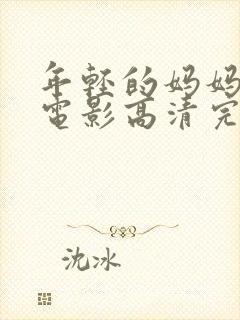 年轻的妈妈
电影高清完
沈冰